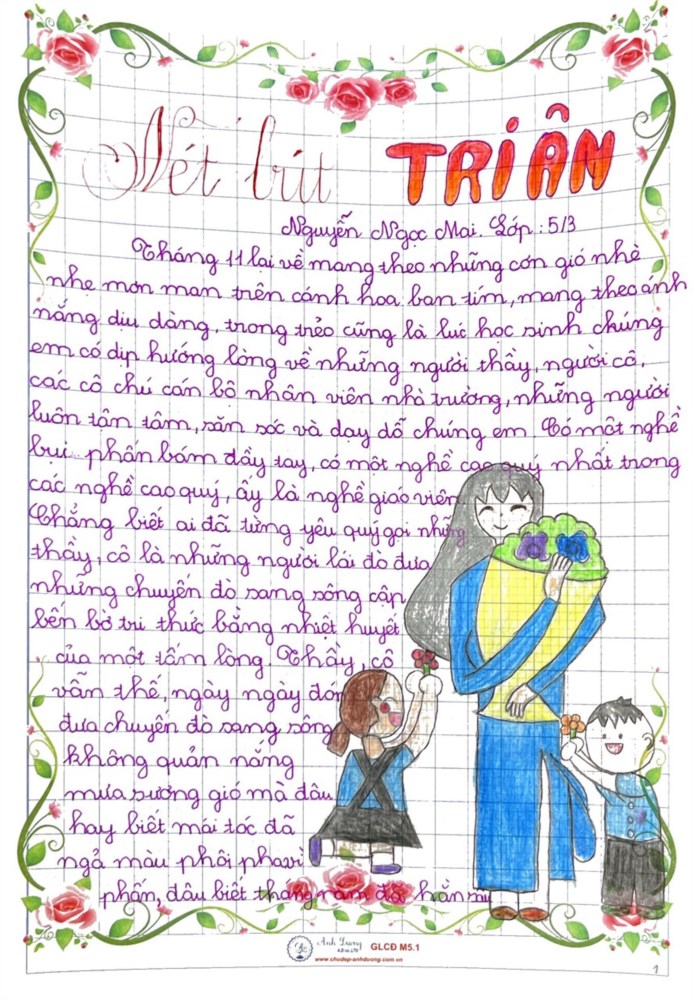 Nét bút TRI ÂN
Nguyễn Ngọc Mai. Lớp: 5/3
Tháng 11 lại về mang theo những cơn gió nhè
nhẹ mơn man trên cánh hoa ban tím, mang theo ánh
nắng dịu dàng, trong trẻo cũng là lúc học sinh chúng
em có dịp hướng lòng về những người thầy, người cô,
các cô chú cán bộ nhân viên nhà trường, những người
luôn tận tâm, săn sóc và dạy dỗ chúng em. Có một nghề
bụi phấn bám đầy tay, có một nghề cao quý nhất trong
các nghề cao quý, ấy là nghề giáo viên
Chẳng biết ai đã từng yêu quý gọi những
thầy, cô là những người lái đò đưa
những chuyến đò sang sông cập
bến bờ tri thức bằng nhiệt huyết
của một tấm lòng. Thầy, cô
vẫn thế, ngày ngày đón
đưa chuyến đò sang sông
không quản nắng
mưa sương gió mà đâu
hay biết mái tóc đã
ngả màu phôi pha vì
phấn, đâu biết tháng năm đã hằn
Anh Dương
GLCĐ M5.1
www.chudep-anhduong.com.vn
1